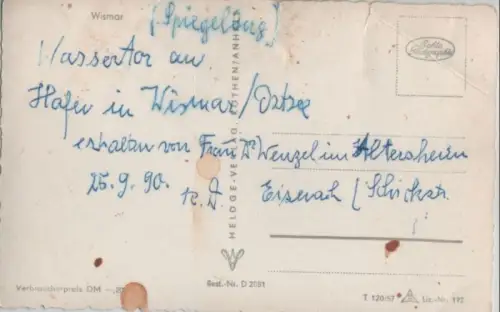 Wismar
(Spiegelung)
Wassertor am
Hafen in Wismar/Ostsee
erhalten von Frau Dr Wenzel im Altersheim
25.9.90.
Eisenach / Schickstr.
HELOGE-VERLAG KÖTHEN/ANHALT
Echte
Verbraucherpreis DM -,20
Best.-Nr. D 2081
T 120/57
Liz.-Nr. 192